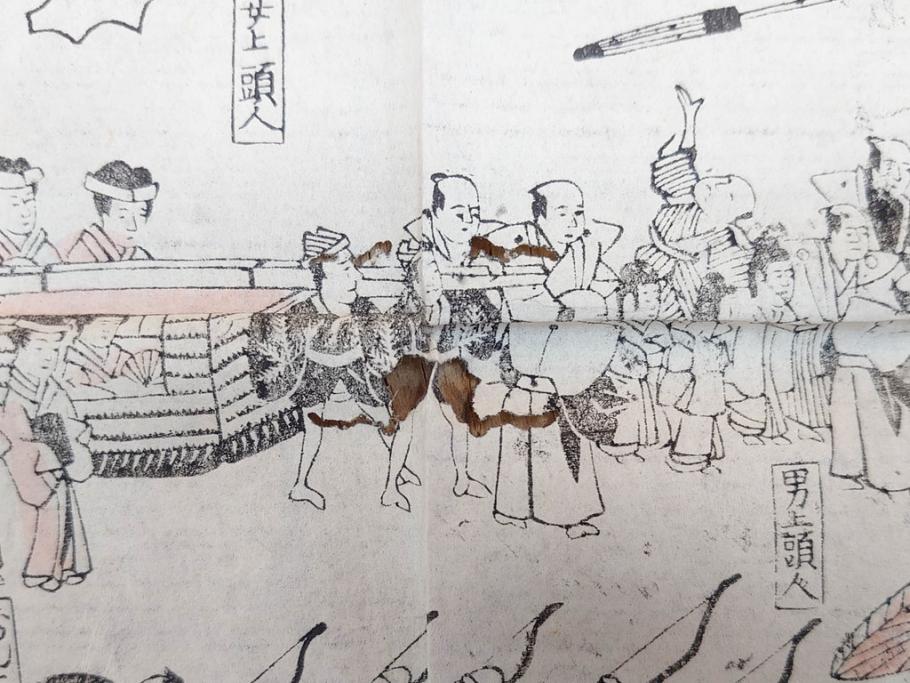 女上頭人
男上頭人